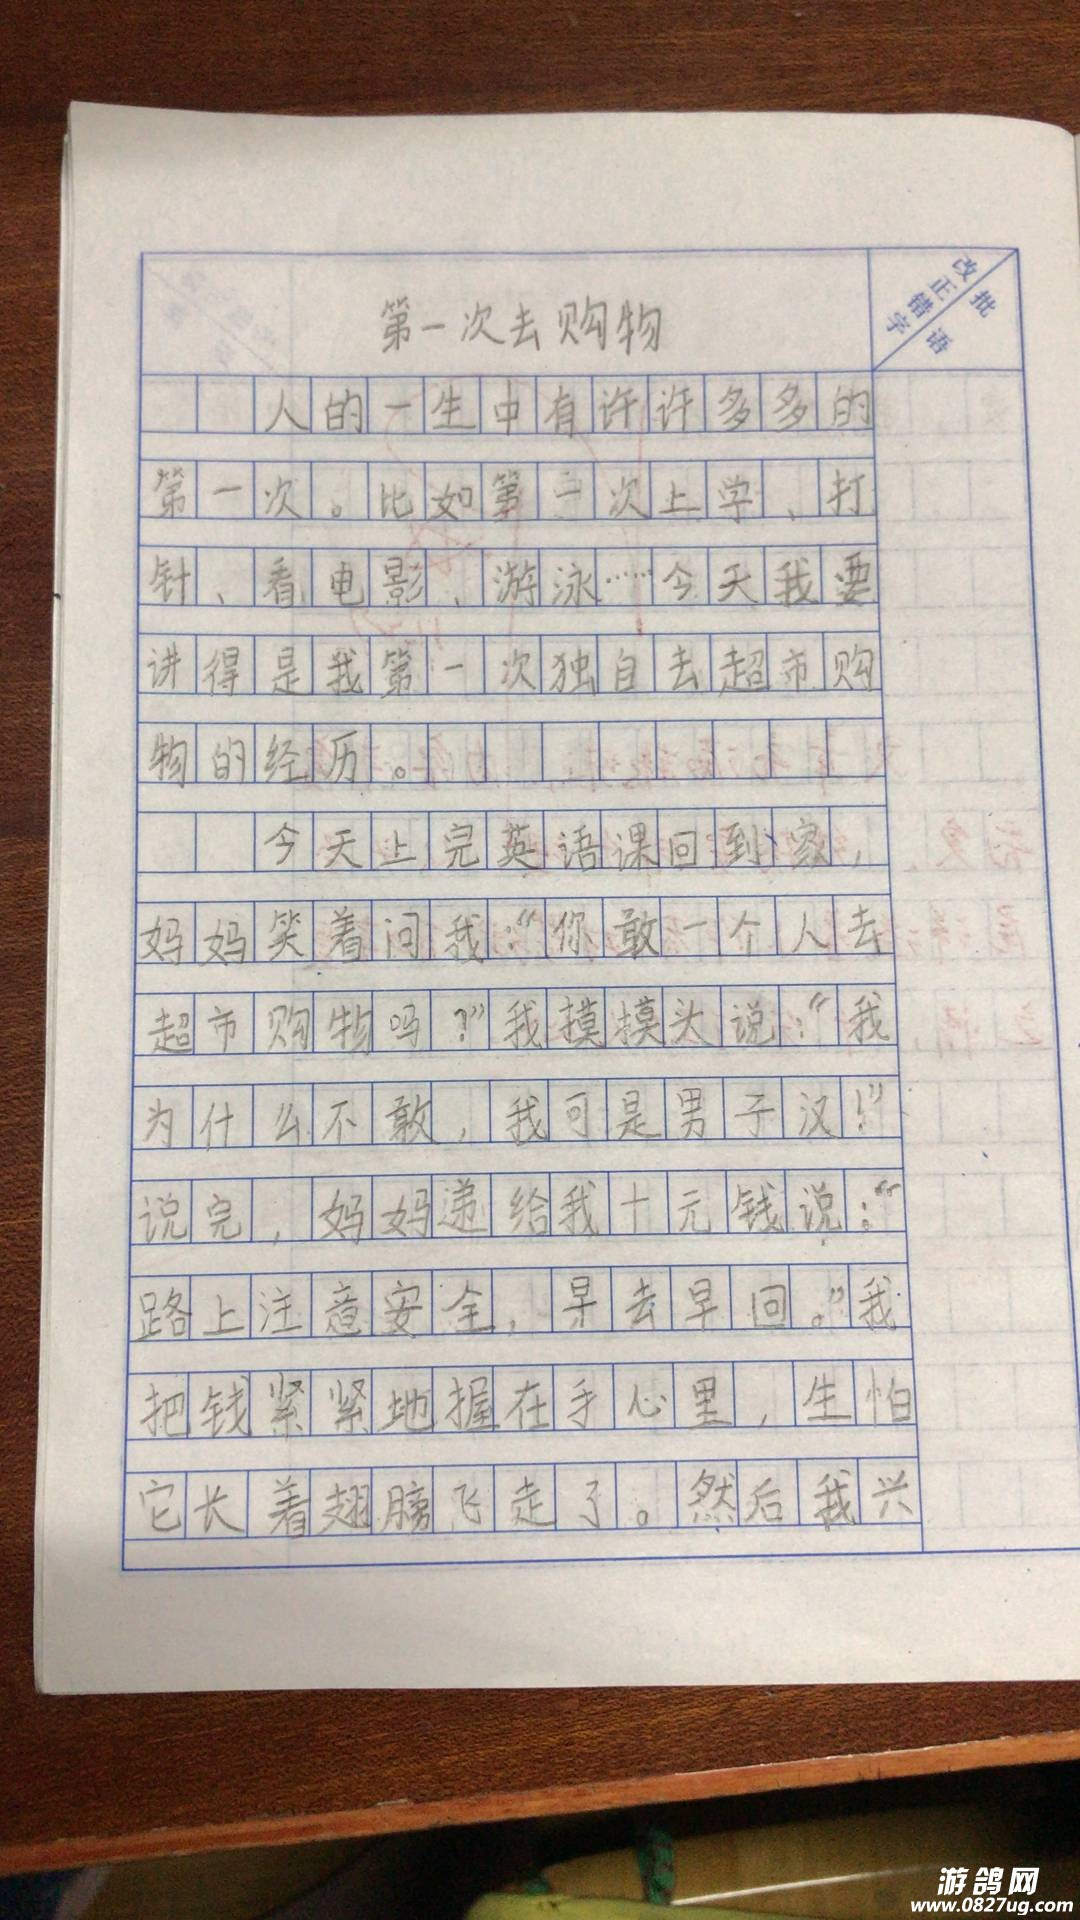 第一次去购物
改正错字
批语
人的一生中有许许多多的
第一次。比如第一次上学、打
针、看电影、游泳……今天我要
讲得是我第一次独自去超市购
物的经历。
今天上完英语课回到家，
妈妈笑着问我：“你敢一个人去
超市购物吗？”我摸摸头说：“我
为什么不敢，我可是男子汉！”
说完，妈妈递给我十元钱说：“
路上注意安全，早去早回。”我
把钱紧紧地握在手心里，生怕
它长着翅膀飞走了。然后我兴
游鸽网
www.0827ug.com